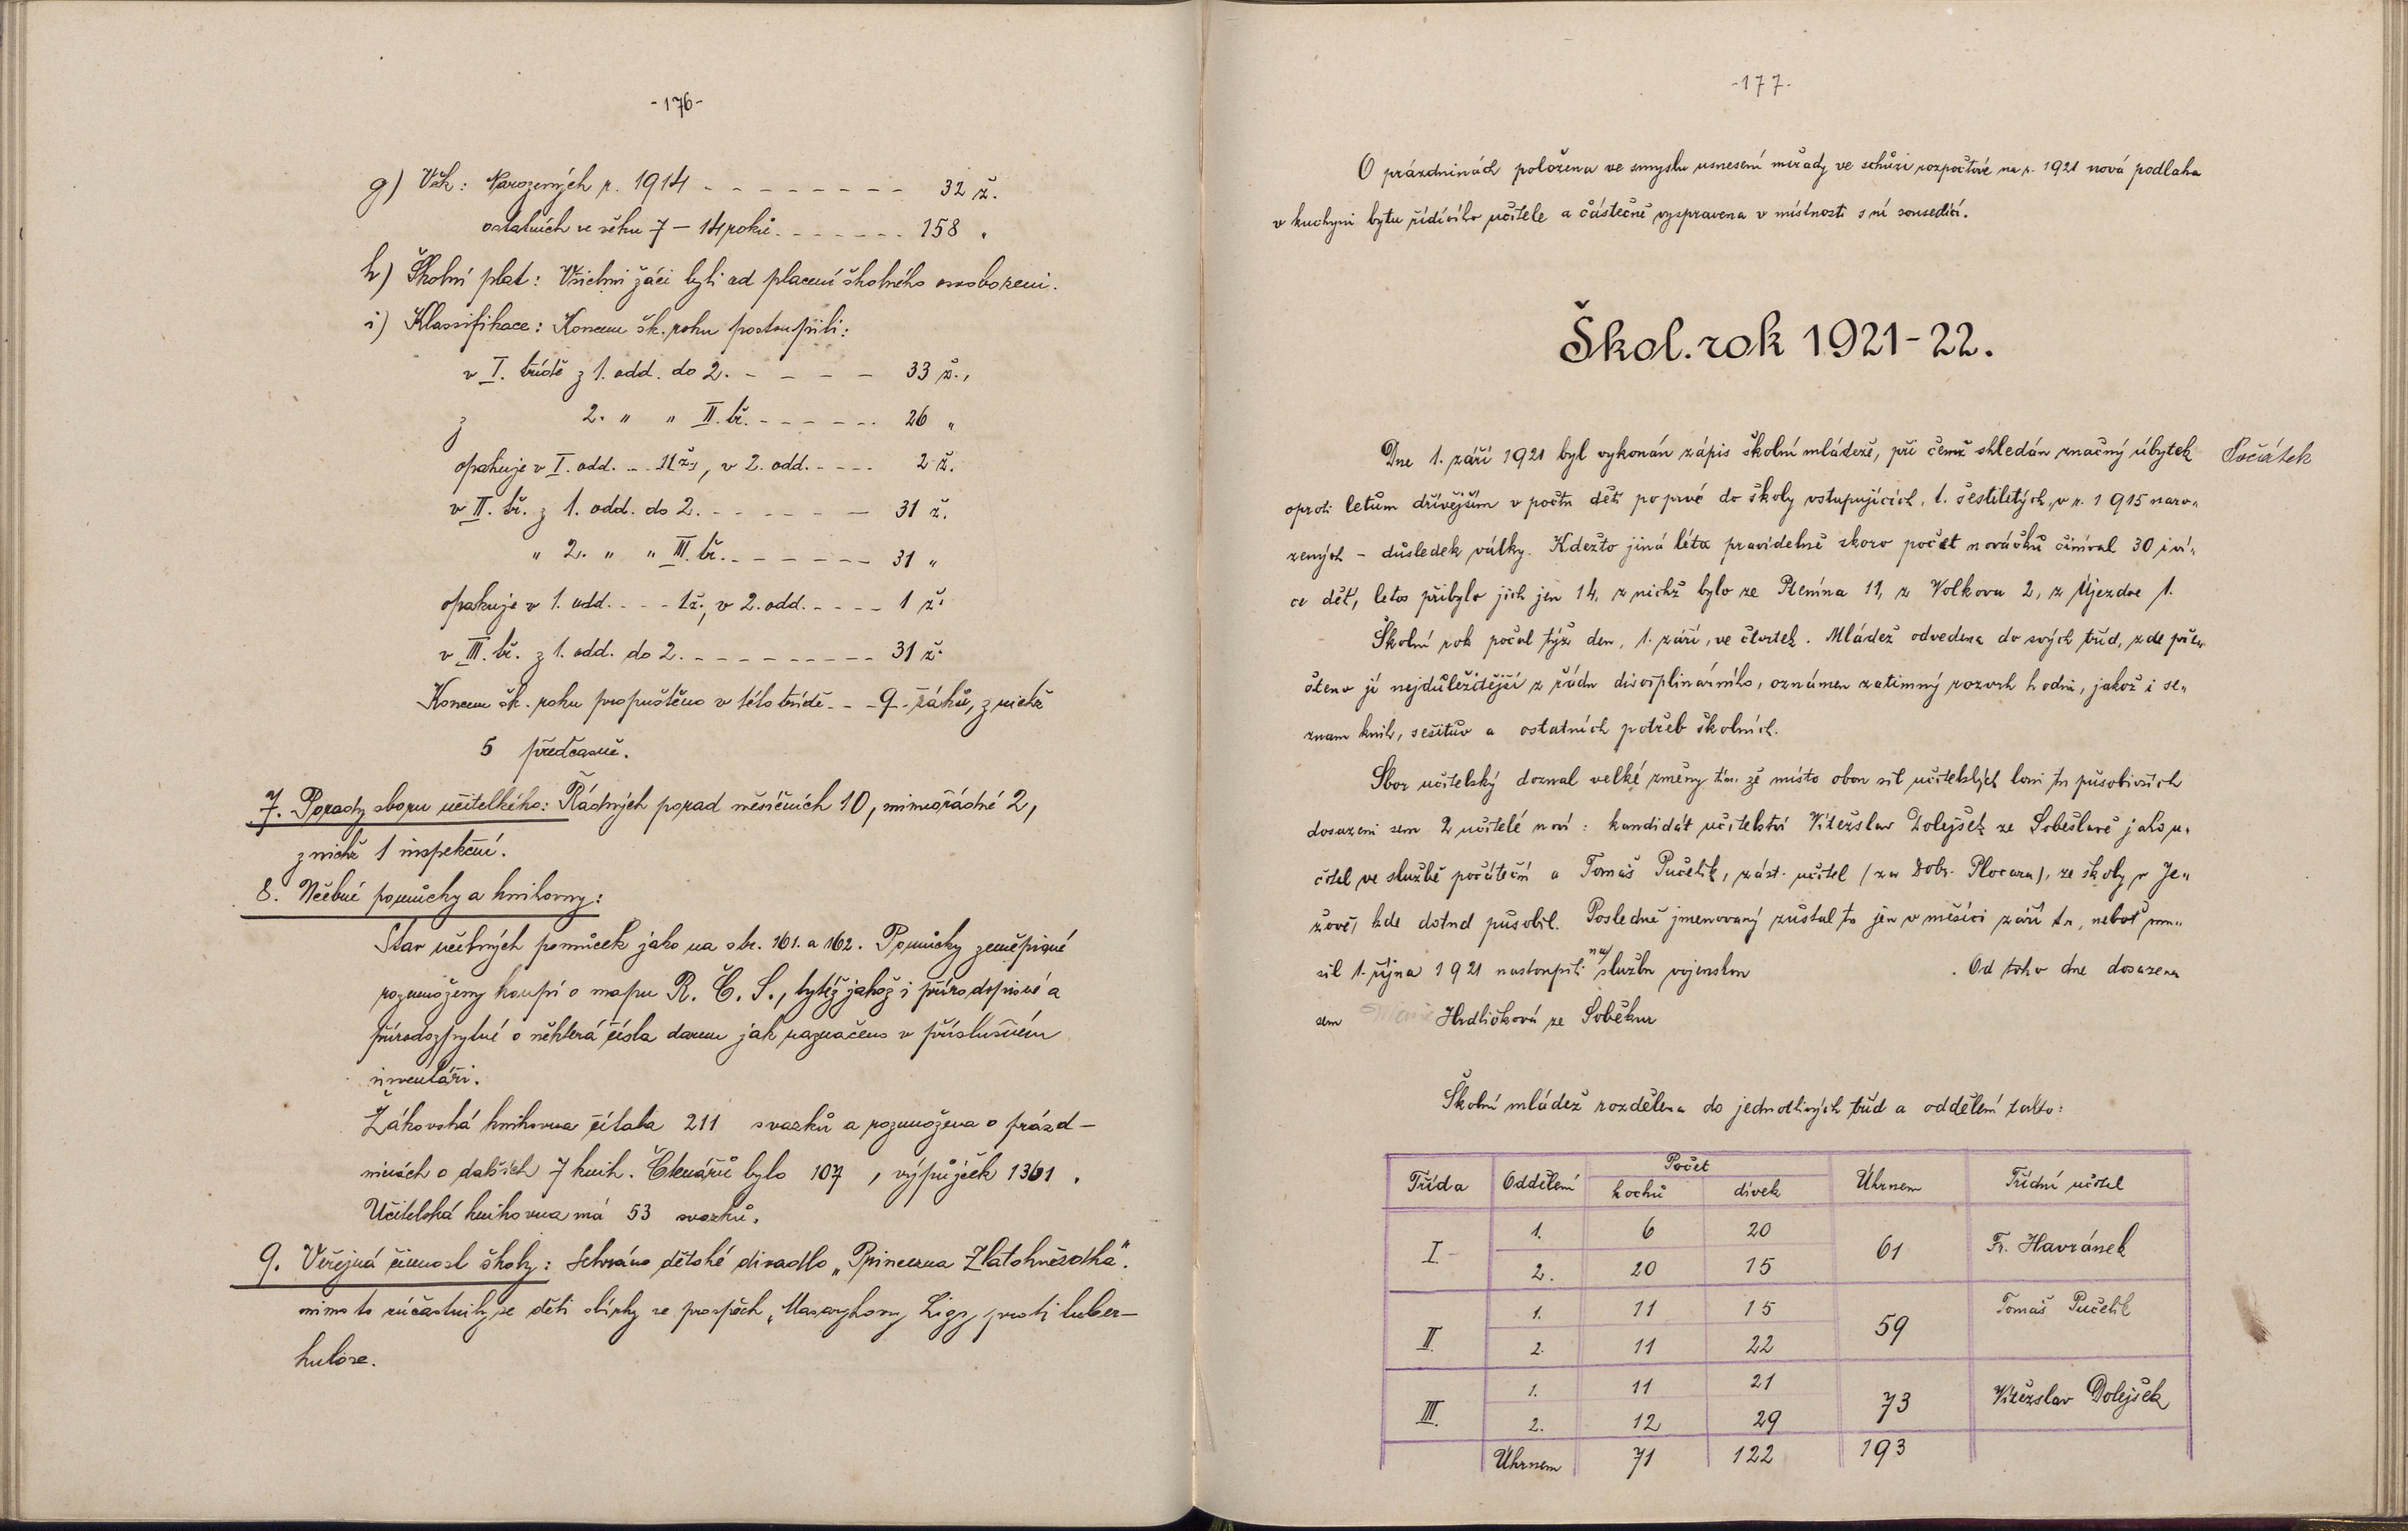 -176-
g) Věk: Narozených r. 1914 - - - - - - - - 32 ž.
ostatních ve věku 7 – 14 roků - - - - - - - 158 "
h) Školní plat: Všichni žáci byli od placení školného osvobozeni.
i) Klassifikace: Koncem šk. roku postoupili:
v I. třídě z 1. odd. do 2. - - - - - 33 ž.,
z 2. " " II. tř. - - - - - - 26 "
opakuje v I. odd. - - 11 ž., v 2. odd. - - - - 2 ž.
v II. tř. z 1. odd. do 2. - - - - - - - 31 ž.
" 2. " " III. tř. - - - - - - - 31 "
opakuje v 1. odd. - - - 1 ž., v 2. odd. - - - - 1 ž.
v III. tř. z 1. odd. do 2. - - - - - - - - - 31 ž.
Koncem šk. roku propuštěno v této třídě - - - 9 - žáků, z nichž
5 předčasně.
7. Porady sboru učitelkého: Řádných porad měsíčních 10, mimořádné 2,
z nichž 1 inspekční.
8. Učebné pomůcky a knihovny:
Stav učebných pomůcek jako na str. 161. a 162. Pomůcky zeměpisné
rozmoženy koupí o mapu R. Č. S., tytéž jakož i přírodopisné a
přírodozpytné o některá čísla darem jak naznačeno v příslušném
inventáři.
Žákovská knihovna čítala 211 svazků a rozmožena o prázd-
ninách o dalších 7 knih. Čtenářů bylo 107, výpůjček 1361.
Učitelská knihovna má 53 svazků.
9. Veřejná činnost školy: Sehráno dětské divadlo „Princezna Zlatohvězdka“.
mimo to súčastnily se děti sbírky ve prospěch „Masarykovy Ligy proti tuber-
kulose.
-177-
O prázdninách položena ve smyslu usnesení m. š. rady ve schůzi rozpočtové na r. 1921 nová podlaha
v kuchyni bytu řídícího učitele a částečně vyspravena v místnosti s ní sousedící.
Škol. rok 1921-22.
Dne 1. září 1921 byl vykonán zápis školní mládeže, při čemž shledán značný úbytek
Počátek
oproti letům dřívějším v počtu dětí poprvé do školy vstupujících, t. šestiletých, v r. 1915 naro„
zených – důsledek války. Kdežto jiná léta pravidelně skoro počet nováčků činíval 30 i ví„
ce dětí, letos přibylo jich jen 14, z nichž bylo ze Ptenína 11, z Volkova 2, z Újezdce 1.
Školní rok počal týž den, 1. září, ve čtvrtek. Mládež odvedena do svých tříd, zde pře„
čteno jí nejdůležitější z řádu disciplinárního, oznámen zatimný rozvrh hodin, jakož i se„
znam knih, sešitův a ostatních potřeb školních.
Sbor učitelský doznal velké změny tím, že místo obou sil učitelských loni tu působivších
dosazeni sem 2 učitelé noví: kandidát učitelství Vítězslav Dolejšek ze Soběslavě jako u„
čitel ve službě počáteční a Tomáš Pučelík, zást. učitel (za Dobr. Plocara), ze školy v Je„
žově, kde dotud působil. Posledně jmenovaný zůstal tu jen v měsíci září tu, neboť mu„
sil 1. října 1921 nastoupiti na službu vojenskou . Od toho dne dosazena
sem Marie Hrdličková ze Soběkur
Školní mládež rozdělena do jednotlivých tříd a oddělení takto:
Třída Oddělení Počet Úhrnem Třídní učitel
hochů dívek
I. 1. 6 20 61 Fr. Havránek
2. 20 15
II. 1. 11 15 59 Tomáš Pučelík
2. 11 22
III. 1. 11 21 73 Vítězslav Dolejšek
2. 12 29
Úhrnem 71 122 193